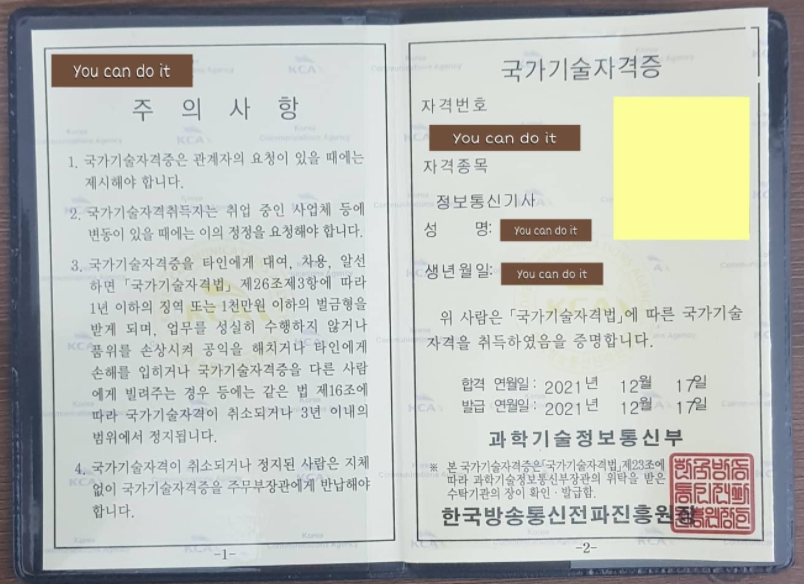 You can do it
주 의 사 항
1. 국가기술자격증은 관계자의 요청이 있을 때에는
제시해야 합니다.
2. 국가기술자격취득자는 취업 중인 사업체 등에
변동이 있을 때에는 이의 정정을 요청해야 합니다.
3. 국가기술자격증을 타인에게 대여, 차용, 알선
하면 「국가기술자격법」 제26조제3항에 따라
1년 이하의 징역 또는 1천만원 이하의 벌금형을
받게 되며, 업무를 성실히 수행하지 않거나
품위를 손상시켜 공익을 해치거나 타인에게
손해를 입히거나 국가기술자격증을 다른 사람
에게 빌려주는 경우 등에는 같은 법 제16조에
따라 국가기술자격이 취소되거나 3년 이내의
범위에서 정지됩니다.
4. 국가기술자격이 취소되거나 정지된 사람은 지체
없이 국가기술자격증을 주무부장관에게 반납해야
합니다.
-1-
국가기술자격증
자격번호
You can do it
자격종목
정보통신기사
성 명: You can do it
생년월일: You can do it
위 사람은 「국가기술자격법」에 따른 국가기술
자격을 취득하였음을 증명합니다.
합격 연월일 : 2021년 12월 17일
발급 연월일 : 2021년 12월 17일
과학기술정보통신부
※ 본 국가기술자격증은 「국가기술자격법」 제23조에
따라 과학기술정보통신부장관의 위탁을 받은
수탁기관의 장이 확인·발급함.
한국방송통신전파진흥원장
-2-
KCA
Korea
Communications Agency